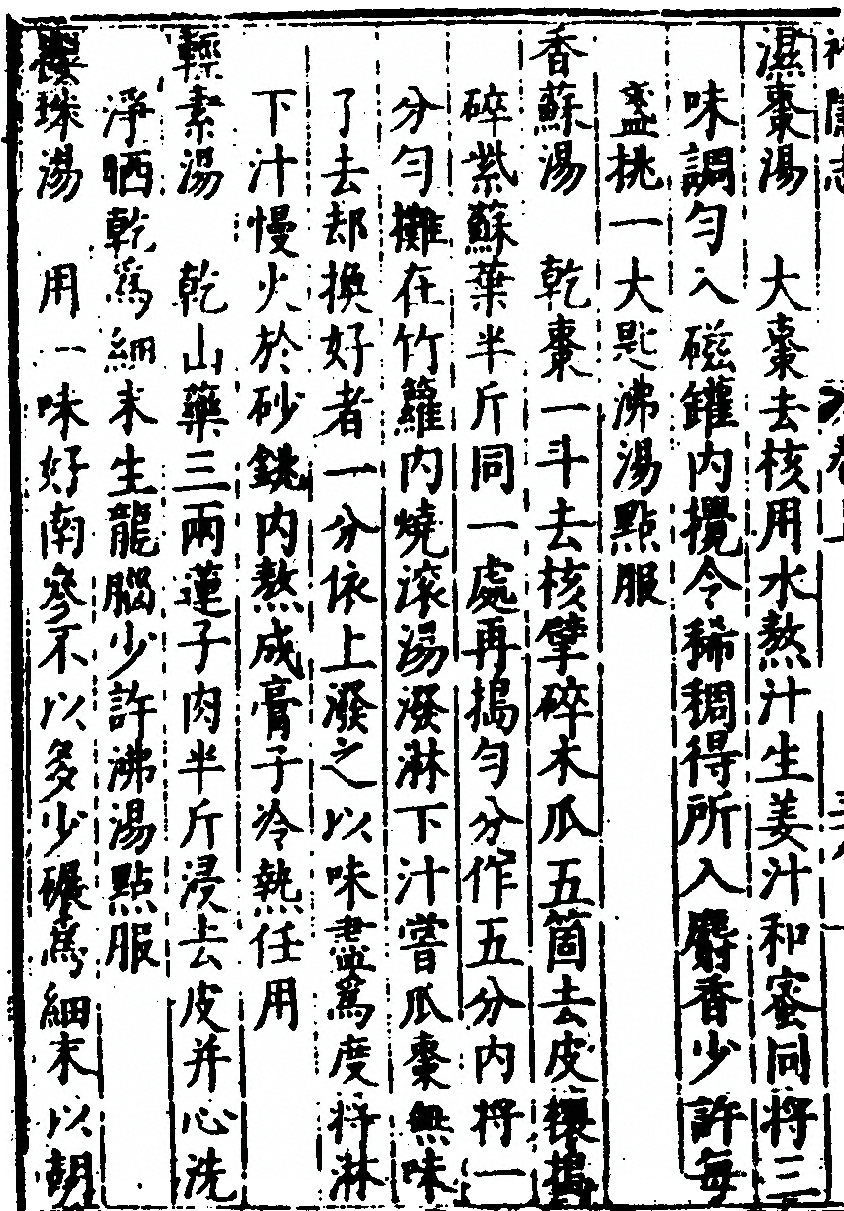 濕棗湯　大棗去核用水熬汁生姜汁和蜜同將三
味調勻入磁罐內攪令稀稠得所入麝香少許每
盞挑一大匙沸湯點服
香蘇湯　乾棗一斗去核擘碎木瓜五箇去皮穰搗
碎紫蘇葉半斤同一處再搗勻分作五分內將一
分勻攤在竹籮內燒滚湯潑淋下汁嘗瓜棗無味
了去却換好者一分依上潑之以味盡爲度將淋
下汁慢火於砂銚內熬成膏子冷熱任用
輕素湯　乾山藥三兩蓮子肉半斤浸去皮并心洗
淨晒乾爲細末生龍腦少許沸湯點服
珠湯　用一味好南參不以多少碾爲細末以胡